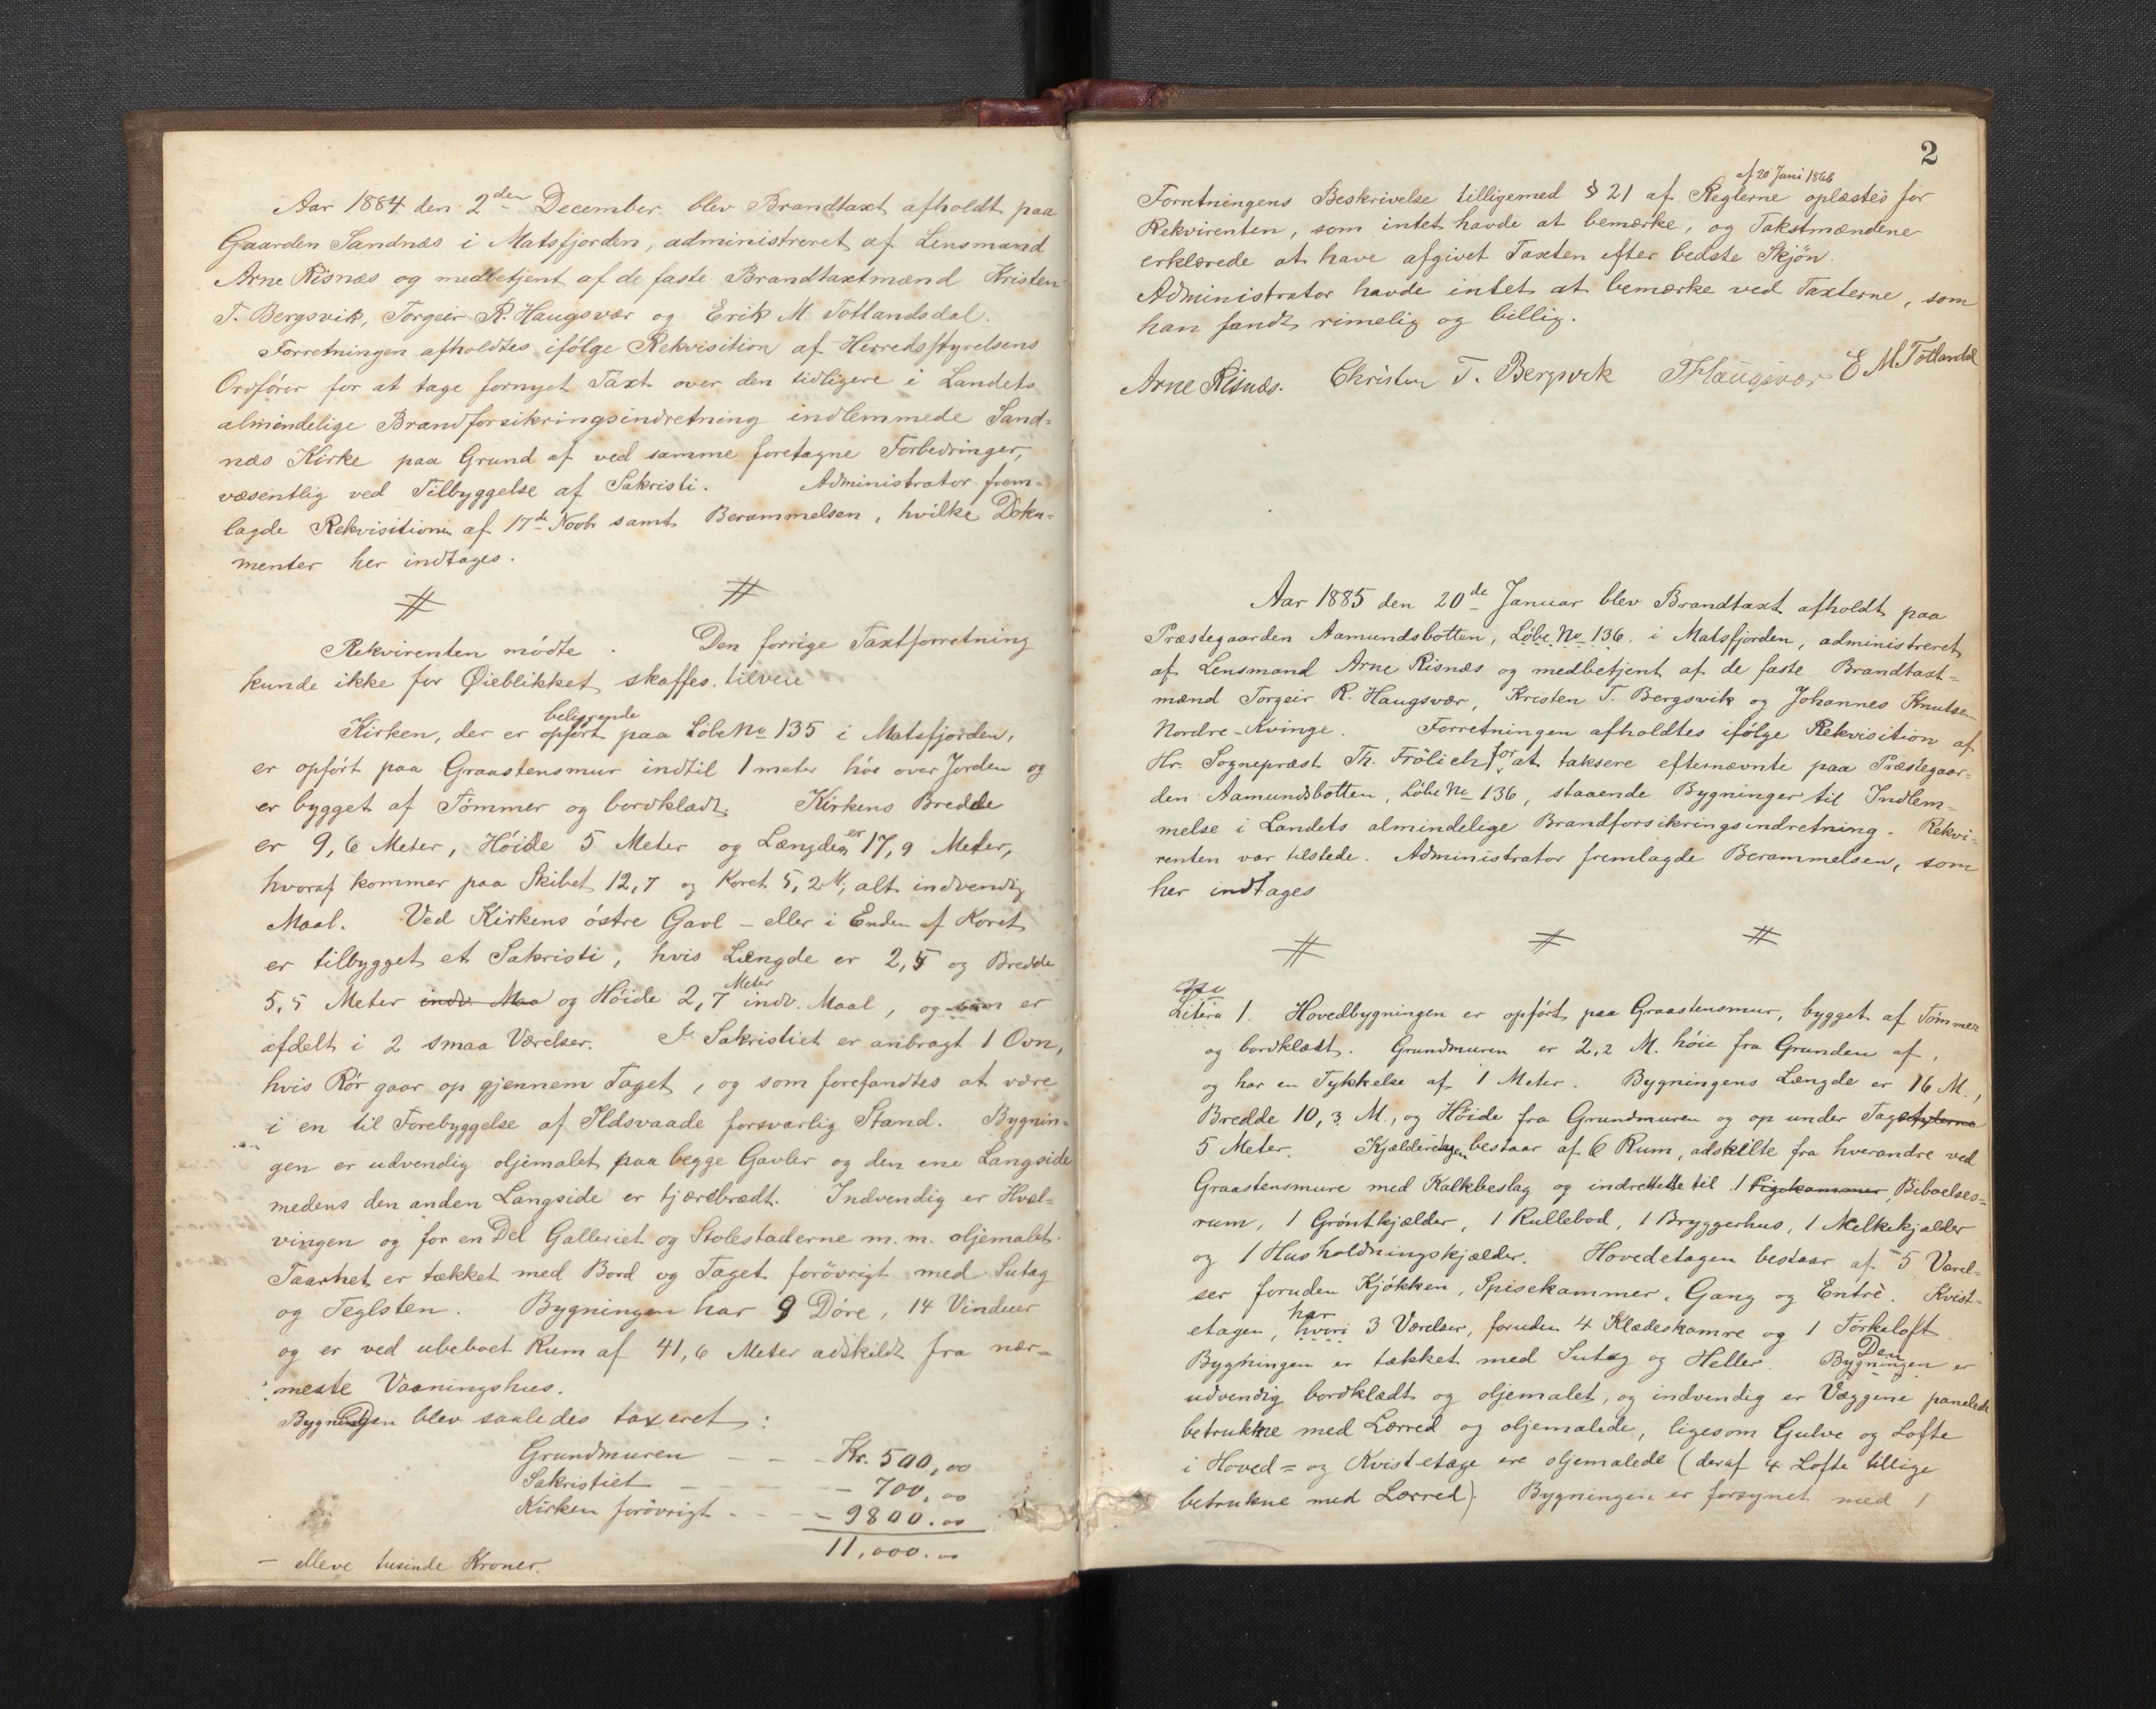 Aar 1884 den 2den December blev Brandtaxt afholdt paa
Gaarden Sandnæs i Matsfjorden, administreret af Lensmand
Arne Risnæs og medbetjent af de faste Brandtaxtmænd Kristen
T. Bergsvik, Torgeir R. Haugsvær og Erik M. Totlandsdal.
Forretningen afholdtes ifølge Rekvisition af Herredsstyrelsens
Ordfører for at tage fornyet Taxt over den tidligere i Landets
almindelige Brandforsikringsindretning indlemmede Sand=
næs Kirke paa Grund af ved samme foretagne Forbedringer,
væsentlig ved Tilbyggelse af Sakristi. Administrator frem=
lagde Rekvisitionen af 17de Novbr samt Berammelsen, hvilke Doku=
menter her indtages.
# #
Rekvirenten mødte. Den forrige Taxtforretning
kunde ikke for Øieblikket skaffes tilveie
beliggende
Kirken, der er opført paa Løbe No 135 i Matsfjorden,
er opført paa Graastensmur indtil 1 meter høi over Jorden og
er bygget af Tømmer og bordklædt. Kirkens Bredde
er 9,6 Meter, Høide 5 Meter og Længden er 17,9 Meter,
hvoraf kommer paa Skibet 12,7 og Koret 5,2 M, alt indvendig
Maal. Ved Kirkens østre Gavl - eller i Enden af Koret
er tilbygget et Sakristi, hvis Længde er 2,5 og Bredde
5,5 Meter indv. Maa og Høide 2,7 Meter indv. Maal, og som er
afdelt i 2 smaa Værelser. I Sakristiet er anbragt 1 Ovn,
hvis Rør gaar op gjennem Taget, og som forefandtes at være
i en til Forebyggelse af Ildsvaade forsvarlig Stand. Bygnin=
gen er udvendig oljemalet paa begge Gavler og den ene Langside
medens den anden Langside er tjærebrædt. Indvendig er Hvæl=
vingen og for en Del Galleriet og Stolestaderne m. m. oljemalet.
Taarnet er tækket med Bord og Taget forøvrigt med Sutag
og Teglsten. Bygningen har 9 Døre, 14 Vinduer
og er ved ubeboet Rum af 41,6 Meter adskildt fra nær=
meste Vaaningshus.
Bygningen blev saaledes taxeret:
Grundmuren - - - Kr. 500,00
Sakristiet - - - - - 700,00
Kirken forøvrigt - - - - 9800.00
11,000.00
- elleve tusinde Kroner.
2
af 20 Juni 1866
Forretningens Beskrivelse tilligemed § 21 af Reglerne oplæstes for
Rekvirenten, som intet havde at bemærke, og Takstmændene
erklærede at have afgivet Taxten efter bedste Skjøn.
Administrator havde intet at bemærke ved Taxterne, som
han fandt rimelig og billig.
Arne Risnæs. Christen T. Bergsvik THaugsvær E M Totlandsdal
Aar 1885 den 20de Januar blev Brandtaxt afholdt paa
Præstegaarden Aamundsbotten, Løbe No 136, i Matsfjorden, administreret
af Lensmand Arne Risnæs og medbetjent af de faste Brandtaxt=
mænd Torgeir R. Haugsvær, Kristen T. Bergsvik og Johannes Knutsen
Nordre-Kvinge. Forretningen afholdtes ifølge Rekvisition af
Hr. Sognepræst Th. Frölich for at taksere efternævnte paa Præstegaar=
den Aamundsbotten, Løbe No 136, staaende Bygninger til Indlem=
melse i Landets almindelige Brandforsikringsindretning. Rekvi=
renten var tilstede. Administrator fremlagde Berammelsen, som
her indtages
# # #
Litera 1. Hovedbygningen er opført paa Graastensmur, bygget af Tømmer
og bordklædt. Grundmuren er 2,2 M. høie fra Grunden af,
og har en Tykkelse af 1 Meter. Bygningens Længde er 16 M.,
Bredde 10,3 M., og Høide fra Grundmuren og op under Tagskjæterne
5 Meter. Kjælderetagen bestaar af 6 Rum, adskilte fra hverandre ved
Graastensmure med Kalkbeslag og indrettede til 1 Pigekammer Beboelses=
rum, 1 Grøntkjælder, 1 Rullebod, 1 Bryggerhus, 1 Melkekjælder
og 1 Husholdningskjælder. Hovedetagen bestaar af 5 Værel=
ser foruden Kjøkken, Spisekammer, Gang og Entrè. Kvist=
har
etagen, hvori 3 Værelser, foruden 4 Klædeskamre og 1 Tørkeloft
Den
Bygningen er tækket med Sutag og Heller. Bygningen er
udvendig bordklædt og oljemalet, og indvendig er Væggene panelede
betrukne med Lærred og oljemalede, ligesom Gulve og Lofte
i Hoved= og Kvist-etage ere oljemalede (deraf 4 Lofte tillige
betrukne med Lærred). Bygningen er forsynet med 1